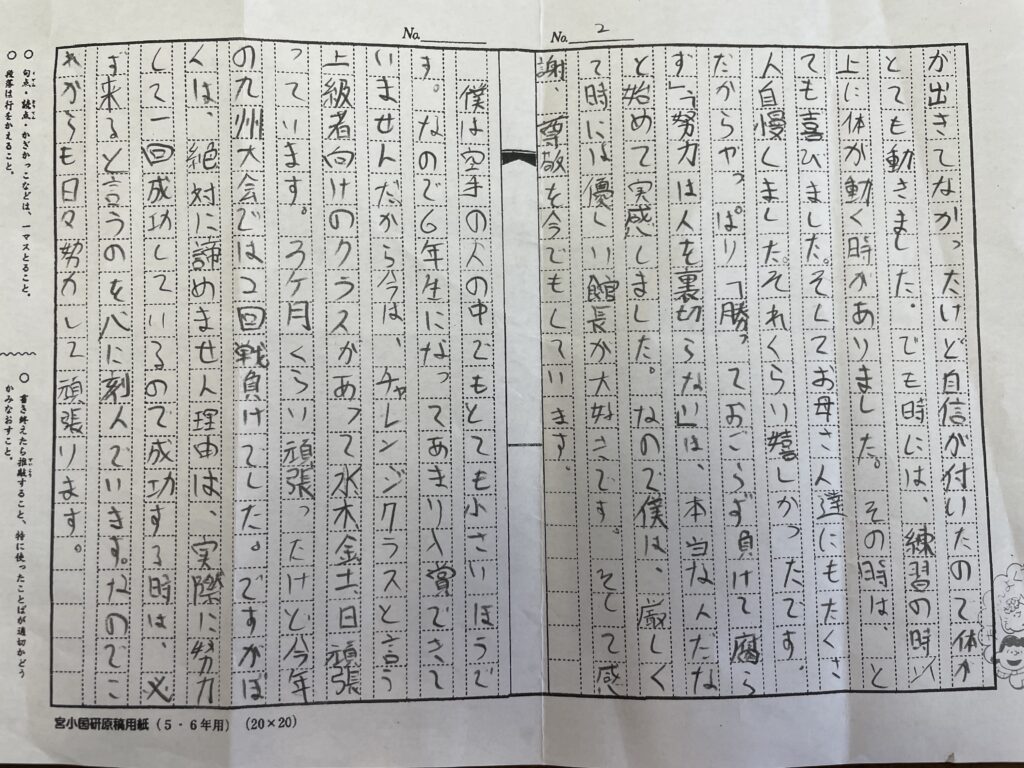 No.
No. 2
が出きてなかったけど自信が付いたので体が
とても動きました。でも時には、練習の時以
上に体が動く時がありました。その時は、と
ても喜びました。そしてお母さん達にもたくさ
ん自慢くました。それくらい嬉しかったです。
だからやっぱり「勝っておごらず負けて腐ら
ず」、「努力は人を裏切らない」は、本当なんだな
と始めて実感しました。なので僕は、厳しく
て時には優しい館長が大好きです。そして感
謝、尊敬を今でもしています。
僕は空手の人の中でもとても小さいほうで
す。なので6年生になってあまり入賞できて
いませんだから今は、チャレンジクラスと言う
上級者向けのクラスがあって水木金土、日頑張
っています。3ヶ月くらい頑張ったけど今年
の九州大会では2回戦負けでした。ですがぼ
くは、絶対に諦めません理由は、実際に努力
して一回成功しているので成功する時は、必
ず来ると言うのを心に刻んでいます。なのでこ
れからも日々努力して頑張ります。
○ 句点・読点・かぎかっこなどは、一マスとること。
○ 段落は行をかえること。
○ 書き終えたら推敲すること、特に使ったことばが適切かどう
かみなおすこと。
宮小国研原稿用紙(5・6年用) (20×20)